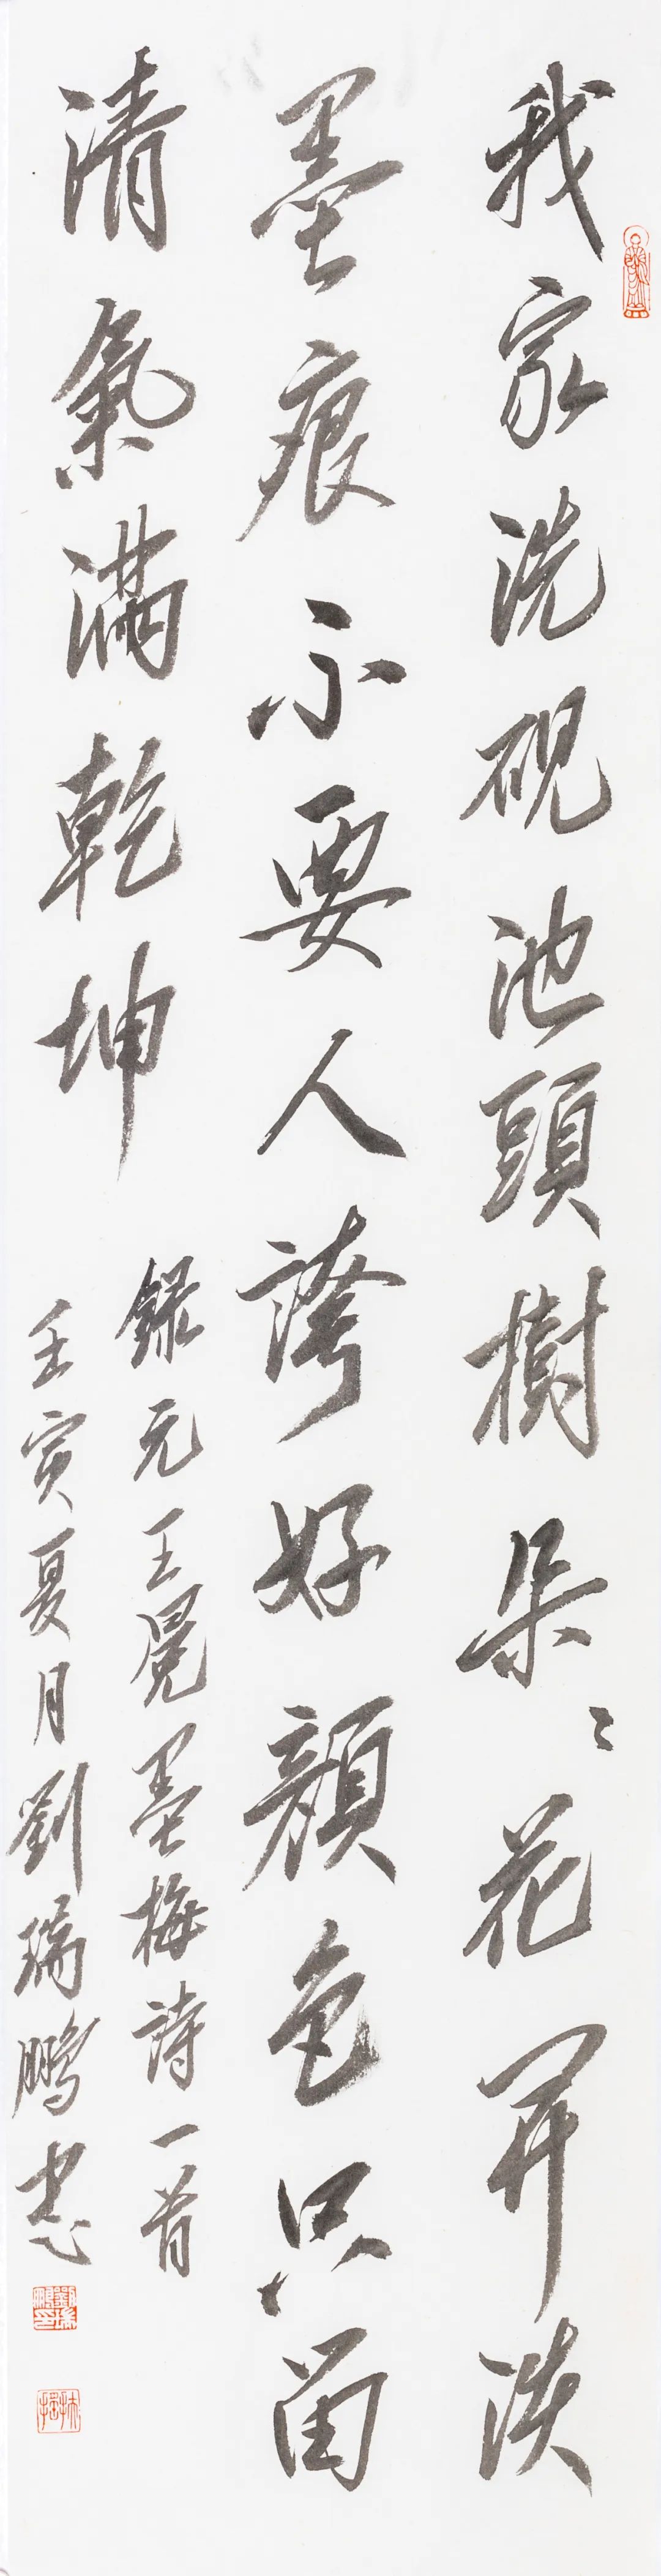 我家洗硯池頭樹朵〻花開淡
墨痕不要人誇好顏色只留
清氣滿乾坤
錄元王冕墨梅詩一首
壬寅夏月劉瑞鵬書
劉瑞鵬印